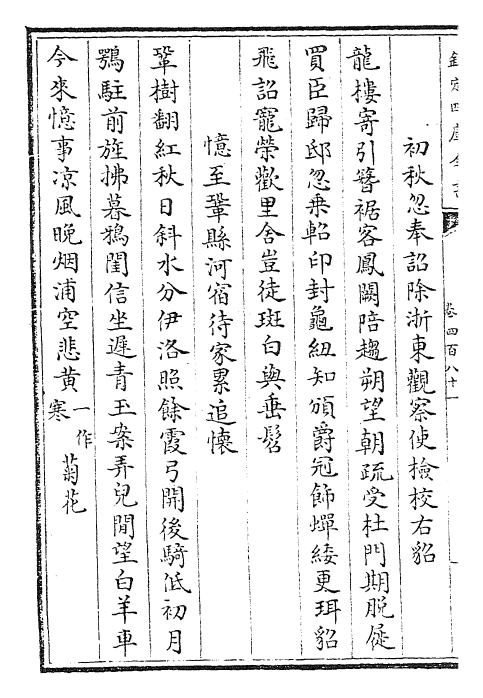 欽定四庫全書
卷四百八十一
初秋忽奉詔除浙東觀察使檢校右貂
龍樓寄引簪裾客鳳闕陪趨朔望朝疏受杜門期脫屣
買臣歸邸忽乘軺印封龜紐知頒爵冠飾蟬緌更珥貂
飛詔寵榮歡里舍豈徒斑白與垂髫
憶至鞏縣河宿待家累追懷
鞏樹翻紅秋日斜水分伊洛照餘霞弓開後騎低初月
鶚駐前旌拂暮鴉閨信坐遲青玉案弄兒閒望白羊車
今來憶事凉風晚烟浦空悲黄一作寒菊花